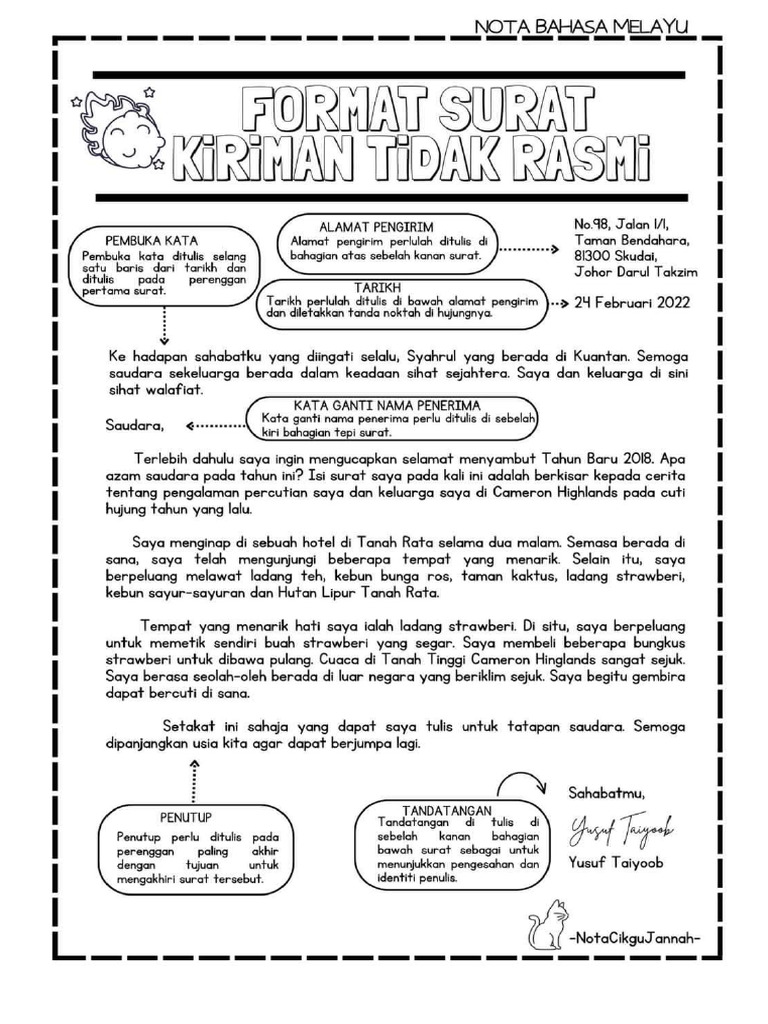 NOTA BAHASA MELAYU
FORMAT SURAT
KiRiMAN TiDAK RASMi
PEMBUKA KATA
Pembuka kata ditulis selang
satu baris dari tarikh dan
ditulis pada perenggan
pertama surat.
ALAMAT PENGIRIM
Alamat pengirim perlulah ditulis di
bahagian atas sebelah kanan surat.
No.98, Jalan 1/1,
Taman Bendahara,
81300 Skudai,
Johor Darul Takzim
TARIKH
Tarikh perlulah ditulis di bawah alamat pengirim
dan diletakkan tanda noktah di hujungnya.
24 Februari 2022
Ke hadapan sahabatku yang diingati selalu, Syahrul yang berada di Kuantan. Semoga
saudara sekeluarga berada dalam keadaan sihat sejahtera. Saya dan keluarga di sini
sihat walafiat.
KATA GANTI NAMA PENERIMA
Kata ganti nama penerima perlu ditulis di sebelah
kiri bahagian tepi surat.
Saudara,
Terlebih dahulu saya ingin mengucapkan selamat menyambut Tahun Baru 2018. Apa
azam saudara pada tahun ini? Isi surat saya pada kali ini adalah berkisar kepada cerita
tentang pengalaman percutian saya dan keluarga saya di Cameron Highlands pada cuti
hujung tahun yang lalu.
Saya menginap di sebuah hotel di Tanah Rata selama dua malam. Semasa berada di
sana, saya telah mengunjungi beberapa tempat yang menarik. Selain itu, saya
berpeluang melawat ladang teh, kebun bunga ros, taman kaktus, ladang strawberi,
kebun sayur-sayuran dan Hutan Lipur Tanah Rata.
Tempat yang menarik hati saya ialah ladang strawberi. Di situ, saya berpeluang
untuk memetik sendiri buah strawberi yang segar. Saya membeli beberapa bungkus
strawberi untuk dibawa pulang. Cuaca di Tanah Tinggi Cameron Hinglands sangat sejuk.
Saya berasa seolah-oleh berada di luar negara yang beriklim sejuk. Saya begitu gembira
dapat bercuti di sana.
Setakat ini sahaja yang dapat saya tulis untuk tatapan saudara. Semoga
dipanjangkan usia kita agar dapat berjumpa lagi.
PENUTUP
Penutup perlu ditulis pada
perenggan paling akhir
dengan tujuan untuk
mengakhiri surat tersebut.
TANDATANGAN
Tandatangan di tulis di
sebelah kanan bahagian
bawah surat sebagai untuk
menunjukkan pengesahan dan
identiti penulis.
Sahabatmu,
Yusuf Taiyoob
Yusuf Taiyoob
-NotaCikguJannah-